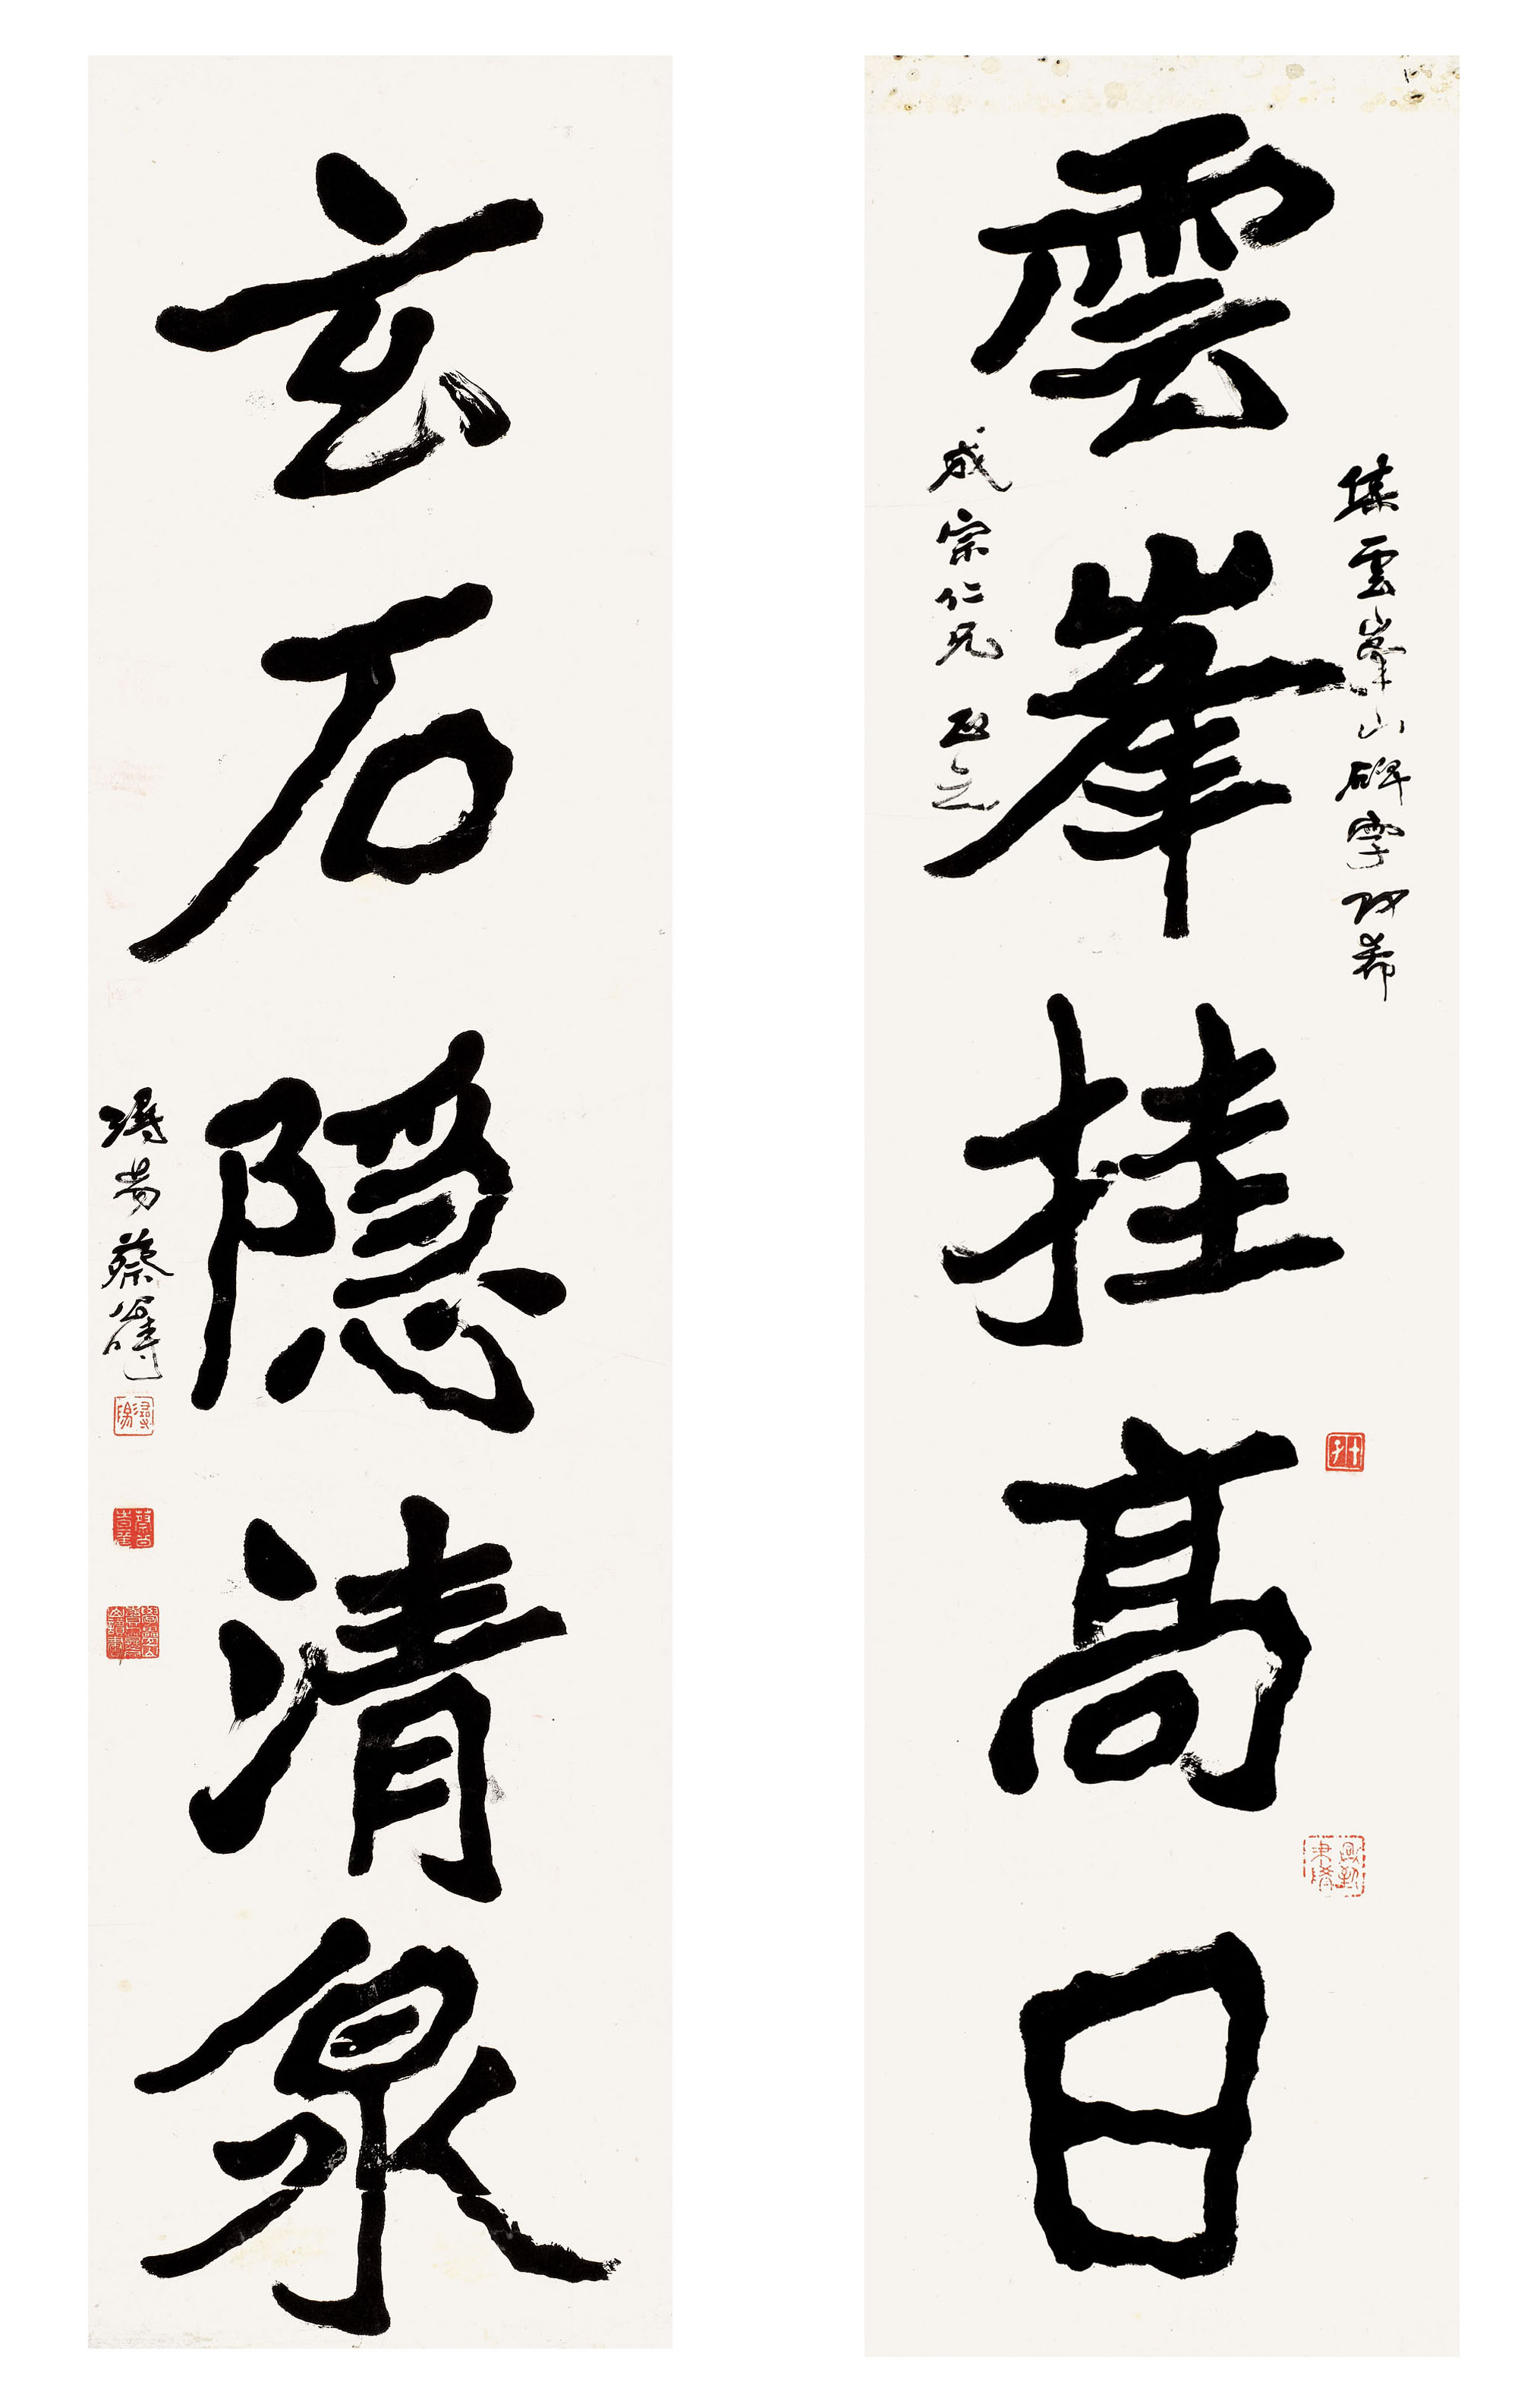 雲峯挂高日
集雲峯山碑字即希
成宗仁兄正之
玄石隱清泉
潯陽蔡公時